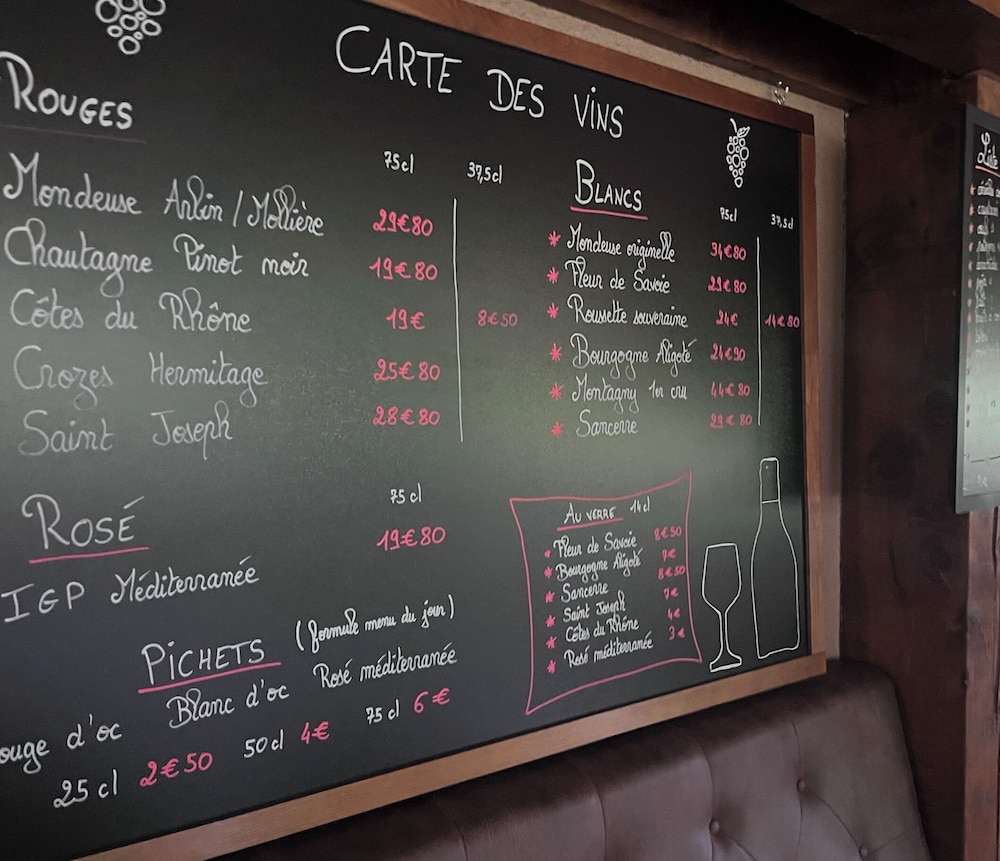 CARTE DES VINS
ROUGES
75cl 37,5cl
Mondeuse Arbin / Mollière 29€80
Chautagne Pinot noir 19€80
Côtes du Rhône 19€ 8€50
Crozes Hermitage 25€80
Saint Joseph 28€80
BLANCS
75cl 37,5cl
* Mondeuse originelle 34€80
* Fleur de Savoie 29€80
* Roussette souveraine 24€ 14€80
* Bourgogne Aligoté 24€90
* Montagny 1er cru 44€80
* Sancerre 29€80
ROSÉ
75cl
IGP Méditerranée 19€80
AU VERRE 14cl
* Fleur de Savoie 8€50
* Bourgogne Aligoté 7€
* Sancerre 8€50
* Saint Joseph 7€
* Côtes du Rhône 4€
* Rosé méditerranée 3€
PICHETS (formule menu du jour)
ouge d'oc Blanc d'oc Rosé méditerranée
25cl 2€50 50cl 4€ 75cl 6€
Liste